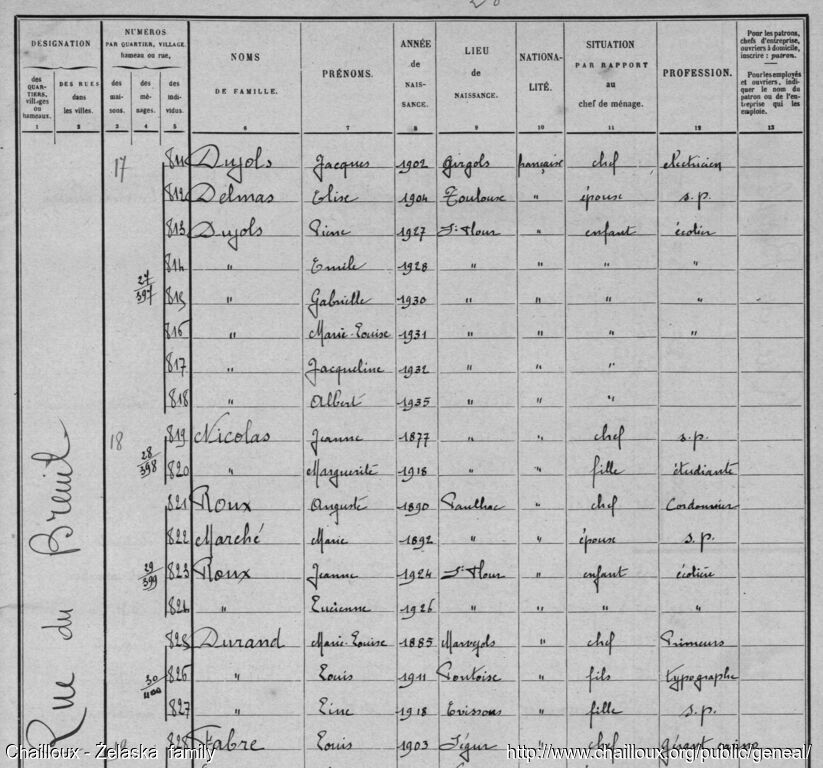 DÉSIGNATION
NUMÉROS
PAR QUARTIER, VILLAGE,
hameau ou rue,
NOMS
DE FAMILLE.
PRÉNOMS.
ANNÉE
de
NAIS-
SANCE.
LIEU
de
NAISSANCE.
NATIONA-
LITÉ.
SITUATION
PAR RAPPORT
au
chef de ménage.
PROFESSION.
Pour les patrons,
chefs d'entreprise,
ouvriers à domicile,
inscrire : patron.
Pour les employés
et ouvriers, indi-
quer le nom du
patron ou de l'en-
treprise qui les
emploie.
des
QUAR-
TIERS,
villages
ou
hameaux.
DES RUES
dans
les villes.
des
mai-
sons.
des
mé-
nages.
des
indi-
vidus.
1 2 3 4 5 6 7 8 9 10 11 12 13
Rue du Breuil
17 811 Dujols Jacques 1902 Girgols française chef électricien
812 Delmas Elise 1904 Toulouse " épouse s.p.
813 Dujols Pierre 1927 St Flour " enfant écolier
814 " Emile 1928 " " " "
27/397 815 " Gabrielle 1930 " " " "
816 " Marie-Louise 1931 " " " "
817 " Jacqueline 1932 " " "
818 " Albert 1935 " " "
18 819 Nicolas Jeanne 1877 " " chef s.p.
28/398 820 " Marguerite 1918 " " fille étudiante
821 Roux Auguste 1890 Paulhac " chef Cordonnier
822 Marché Marie 1892 " " épouse s.p.
29/399 823 Roux Jeanne 1924 St Flour " enfant écolière
824 " Lucienne 1926 " " " "
825 Durand Marie-Louise 1885 Marvejols " chef Primeurs
30/400 826 " Louis 1911 Pontoise " fils typographe
827 " 1918 " fille s.p.
828 Fabre Louis 1903 Ségur " chef gérant
Chailloux - Żelaska family
http://www.chailloux.org/public/geneal/